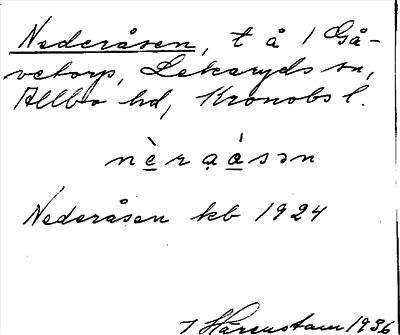 Nederåsen, t å 1 Gå-
vetorp, Lekaryds sn,
Allbo hd, Kronobs l.
nèraåsən
Nederåsen kb 1924
Härenstam 1936